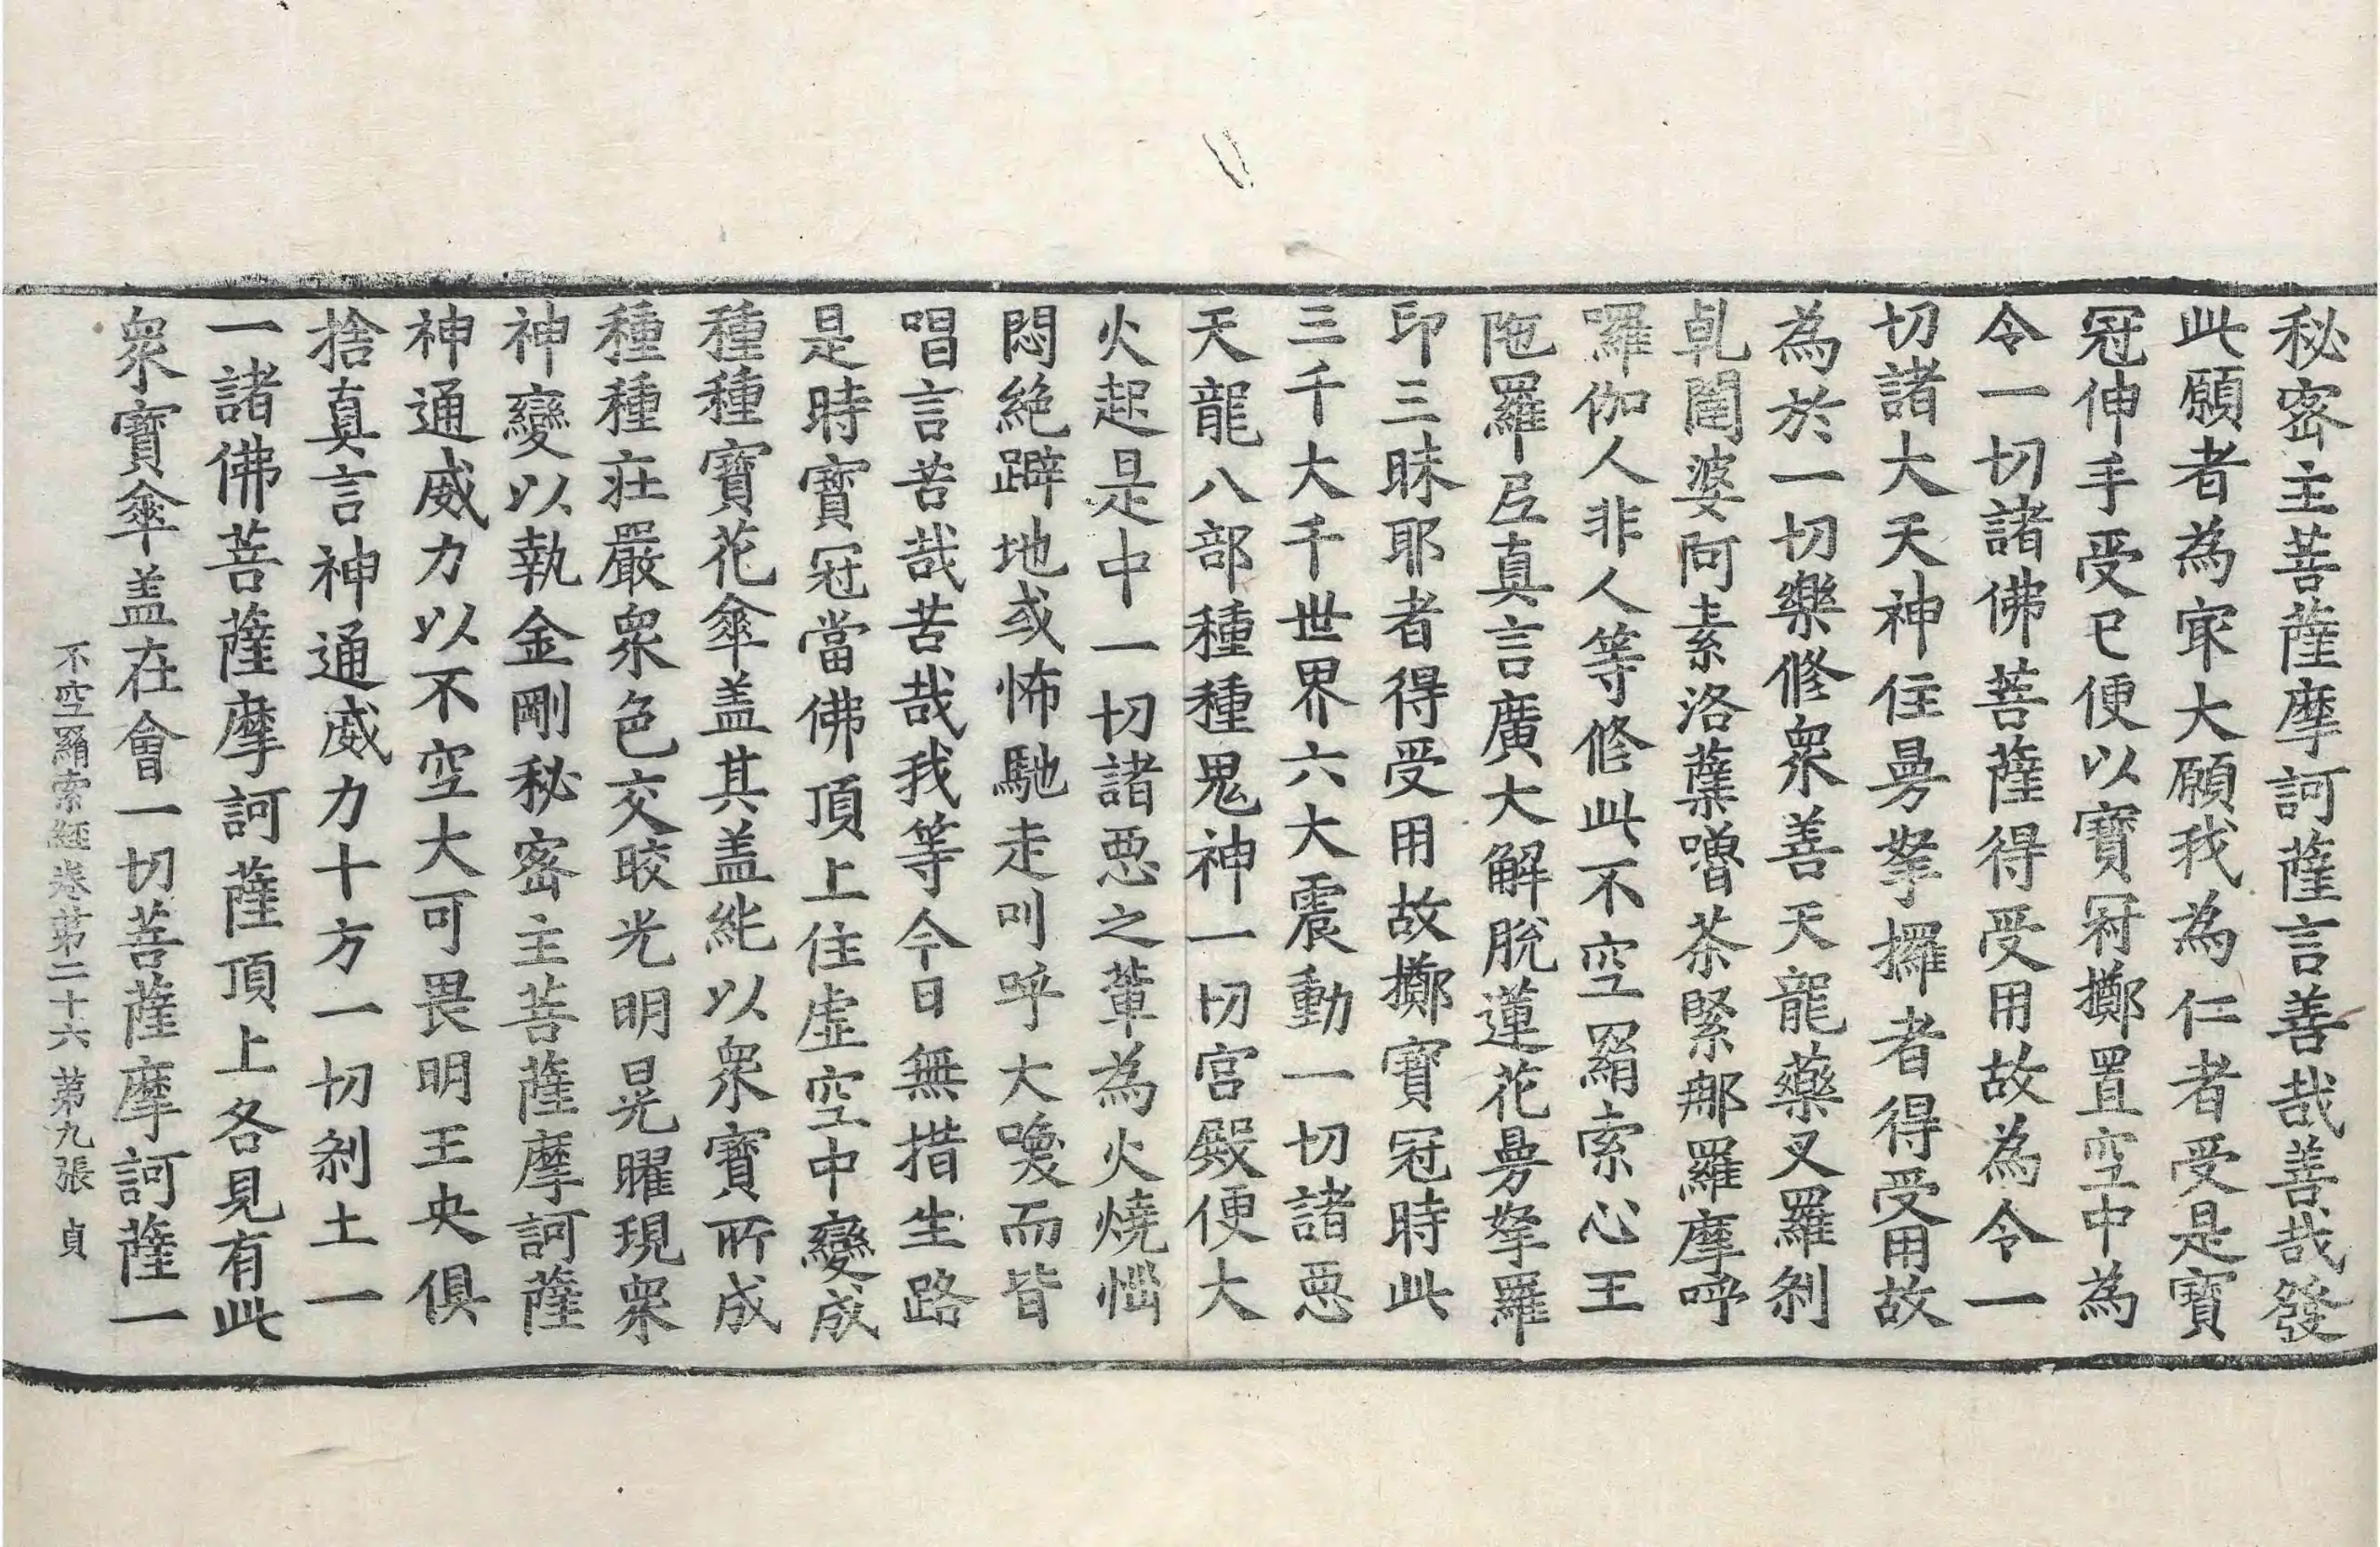 秘密主菩薩摩訶薩言善哉善哉發
此願者為冣大願我為仁者受是寶
冠伸手受已便以寶冠擲置空中為
令一切諸佛菩薩得受用故為令一
切諸大天神住曼拏攞者得受用故
為於一切樂修眾善天龍藥叉羅剎
乹闥婆阿素洛蘗嚕茶緊那羅摩呼
羅伽人非人等修此不空羂索心王
陁羅𡰱真言廣大解脫蓮花曼拏羅
印三昧耶者得受用故擲寶冠時此
三千大千世界六大震動一切諸惡
天龍八部種種鬼神一切宮殿便大
火起是中一切諸惡之輩為火燒惱
悶絕躃地或怖馳走叫呼大喚而皆
唱言苦哉苦哉我等今日無措生路
是時寶冠當佛頂上住虛空中變成
種種寶花傘盖其盖能以眾寶所成
種種莊嚴眾色交晈光明晃曜現眾
神變以執金剛秘密主菩薩摩訶薩
神通威力以不空大可畏明王央俱
捨真言神通威力十方一切剎土一
一諸佛菩薩摩訶薩頂上各見有此
眾寶傘盖在會一切菩薩摩訶薩一
不空羂索經卷第二十六 第九張 貞